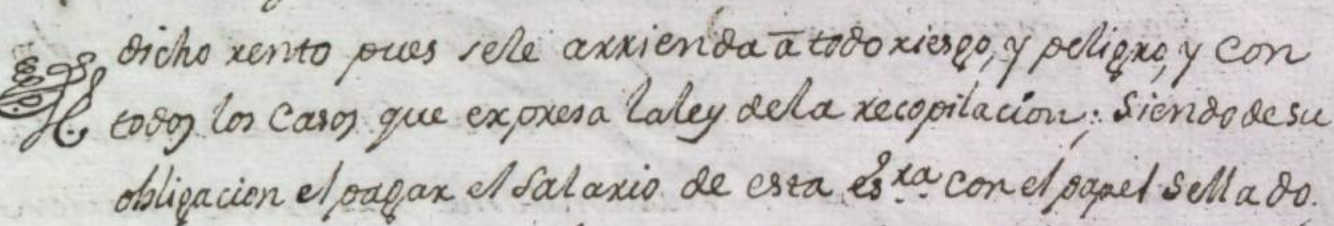 dicho rento pues sele arrienda â todo riesgo, y peligro, y con
todos los casos que expresa la ley dela recopilacion; siendo de su
obligacion el pagar el salario de esta es.ra con el papel sellado.